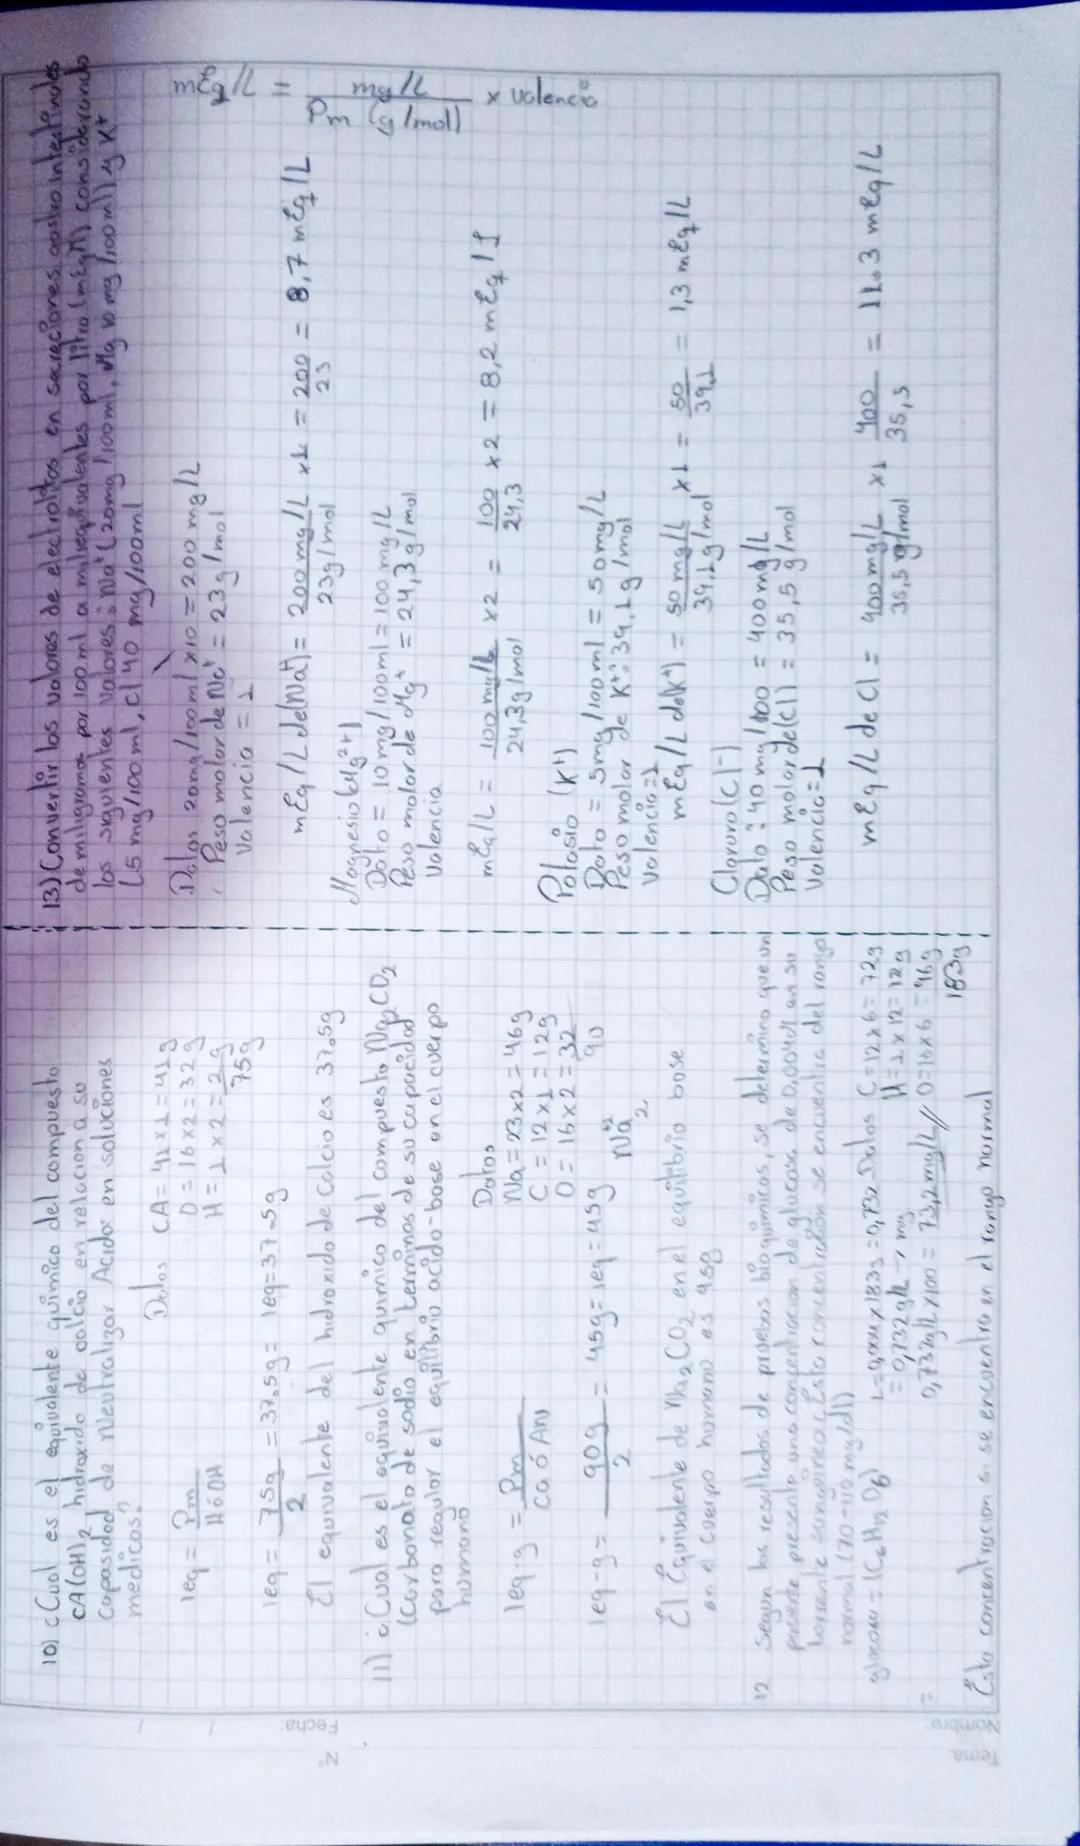 10) ¿Cual es el equivalente químico del compuesto
CA(OH)2 hidroxido de calcio en relacion a su
capasidad de Neutralizar Acidos en soluciones
medicos?
Datos CA = 41x1 = 41g
O = 16x2 = 32g
H = 1x2 = 2g
75g
1eq = Pm / H ó OH
1eq = 75g / 2 = 37.5g = 1eq = 37.5g
El equivalente del hidroxido de Calcio es 37.5g
11) ¿Cual es el equivalente químico del compuesto Na2CO2
(Carbonato de sodio en terminos de su capacidad
para regular el equilibrio acido-base en el cuerpo
humano
Datos
Na = 23x2 = 46g
C = 12x1 = 12g
O = 16x2 = 32
90
1eq-g = Pm / Ca ó An
1eq-g = 90g / 2 = 45g = 1eq = 45g Na+2 2
El Equivalente de Na2CO2 en el equilibrio base
en el cuerpo humano es 45g
12 Segun los resultados de pruebas bioquimicos, se determino que un
paciente presento una concentracion de glucosa de 0,004M en su
torrente sanguineo ¿Esta concentración se encuentra del rango
normal (70-110 mg/dl)
glucosa = (C6H12O6) L = 0,004x183g = 0,732 Datos C = 12x6 = 72g
= 0,732g/L -> mg H = 1x12 = 12g
= 0,732g/L x100 = 73,2mg/L // O = 16x6 = 96g
183g
Esta concentracion si se encuentra en el rango normal
13) Convertir los valores de electrolitos en secreciones gastrointestinales
de miligramos por 100 ml a miliequivalentes por litro (mEq/l) considerando
los siguientes valores: Na+ (20mg/100ml, Mg 10 mg/100ml) y K+
(5 mg/100ml, Cl 40 mg/100ml
Datos 20mg/100ml x10 = 200 mg/L
Peso molar de Na+ = 23g/mol
Valencia = 1
mEq/L = mg/L / Pm (g/mol) x valencia
mEq/L de(Na+) = 200mg/L / 23g/mol x1 = 200 / 23 = 8,7 mEq/L
Magnesio (Mg2+)
Dato = 10mg/100ml = 100 mg/L
Peso molar de Mg+ = 24,3g/mol
Valencia
mEq/L = 100mg/L / 24,3g/mol x2 = 100 / 24,3 x2 = 8,2 mEq/l
Potasio (K+)
Dato = 5mg/100ml = 50mg/L
Peso molar de K+: 39,1g/mol
Valencia=1
mEq/L de(K+) = 50mg/L / 39.1g/mol x1 = 50 / 39,1 = 1,3 mEq/L
Cloruro (Cl-)
Dato: 40 mg/100 = 400mg/L
Peso molar de(Cl) = 35,5g/mol
Valencia=1
mEq/L de Cl = 400mg/L / 35,5g/mol x1 400 / 35,5 = 11.3 mEq/L
N°
Fecha:
Tema
Nombre: